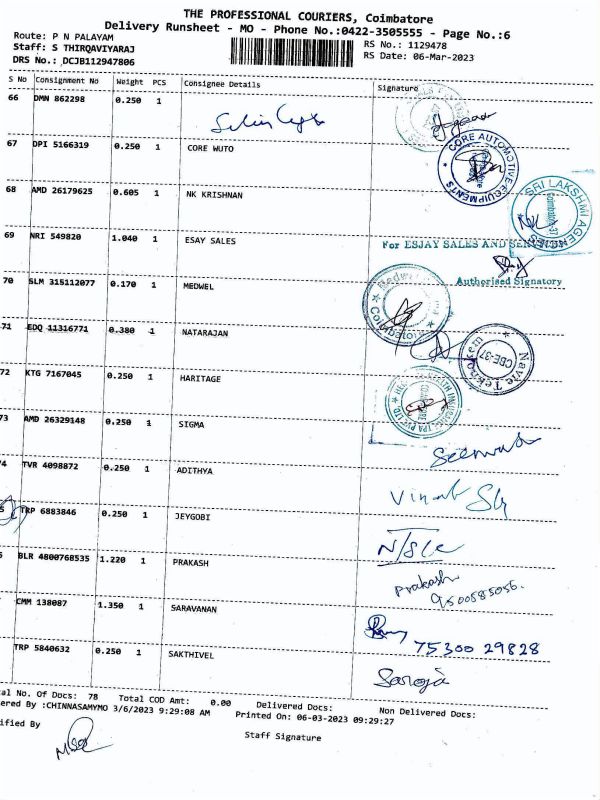 THE PROFESSIONAL COURIERS, Coimbatore
Delivery Runsheet - MO - Phone No.:0422-3505555 - Page No.:6
Route: P N PALAYAM
RS No.: 1129478
Staff: S THIRQAVIYARAJ
RS Date: 06-Mar-2023
DRS No.: DCJB112947806
S No Consignment No Weight PCS Consignee Details Signature
66 DMN 862298 0.250 1
67 DPI 5166319 0.250 1 CORE WUTO
CORE AUTOMOTIVE EQUIPMENTS
68 AMD 26179625 0.605 1 NK KRISHNAN
SRI LAKSHMI AGENCIES
Coimbatore-37
69 NRI 549820 1.040 1 ESAY SALES
For ESJAY SALES AND SERVICES
Authorised Signatory
70 SLM 315112077 0.170 1 MEDWEL
Coimbatore
71 EDQ 11316771 0.380 1 NATARAJAN
CBE-37
72 KTG 7167045 0.250 1 HARITAGE
73 AMD 26329148 0.250 1 SIGMA
74 TVR 4098872 0.250 1 ADITHYA
Vinoth
5 TRP 6883846 0.250 1 JEYGOBI
BLR 4800768535 1.220 1 PRAKASH
Prakash
9500585056.
CMM 138087 1.350 1 SARAVANAN
75300 29828
TRP 5840632 0.250 1 SAKTHIVEL
Saroja
al No. Of Docs: 78 Total COD Amt: 0.00 Delivered Docs: Non Delivered Docs:
ered By :CHINNASAMYMO 3/6/2023 9:29:08 AM Printed On: 06-03-2023 09:29:27
ified By
Staff Signature